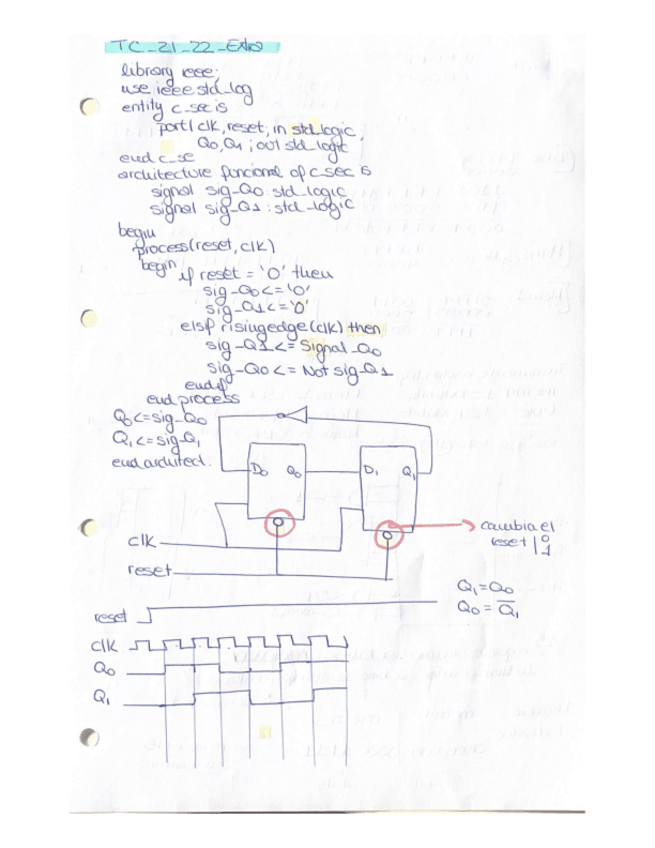 TC_21_22_Extra
library ieee;
use ieee std_log
entity c_sec is
port( clk, reset, in std_logic;
Q0, Q1 ; out std_logic
end c_se
architecture funcional of c_sec is
signal sig_Q0 : std_logic
signal sig_Q1 : std_logic
begin
process(reset, clk)
begin
if reset = '0' then
sig_Q0 <= '0'
sig_Q1 <= '0'
elsif risingedge(clk) then
sig_Q1 <= Signal_Q0
sig_Q0 <= Not sig_Q1
end if
end process
Q0 <= sig_Q0
Q1 <= sig_Q1
end architect.
D0 Q0 D1 Q1
clk
reset
cambia el
reset | 0 1
Q1 = Q0
Q0 = Q̅1
reset
clk
Q0
Q1